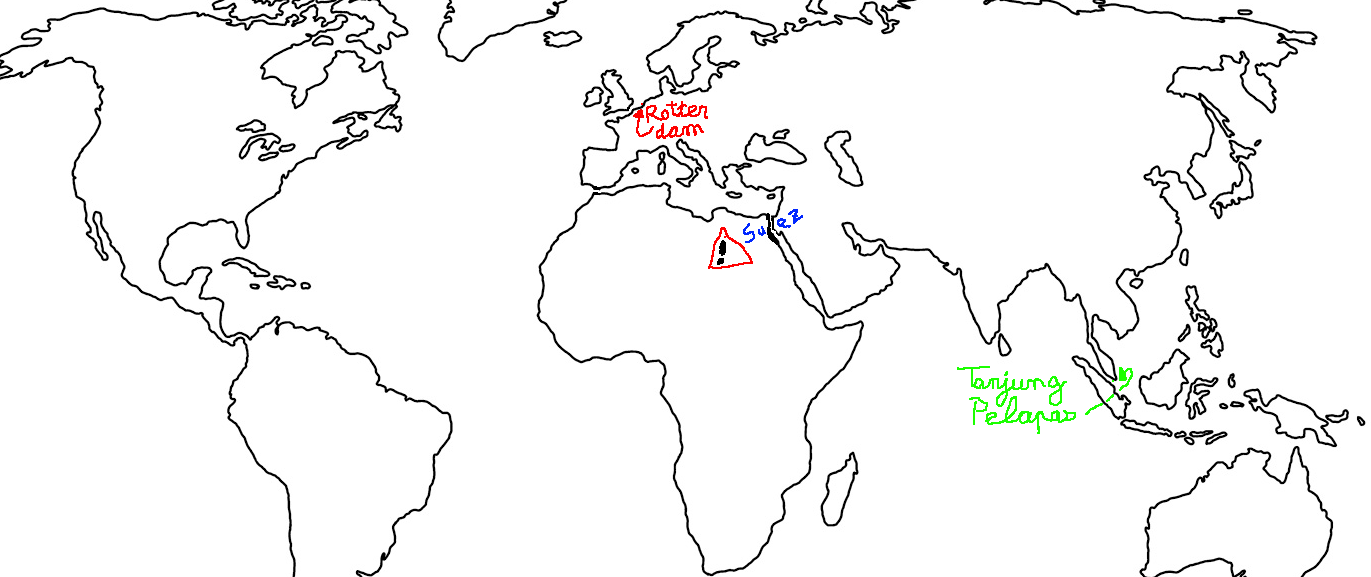 Rotter
dam
Suez
!
Tanjung
Pelapas